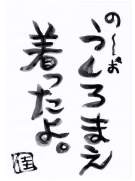 の〜ぉ
うしろまえ
着ったよ。